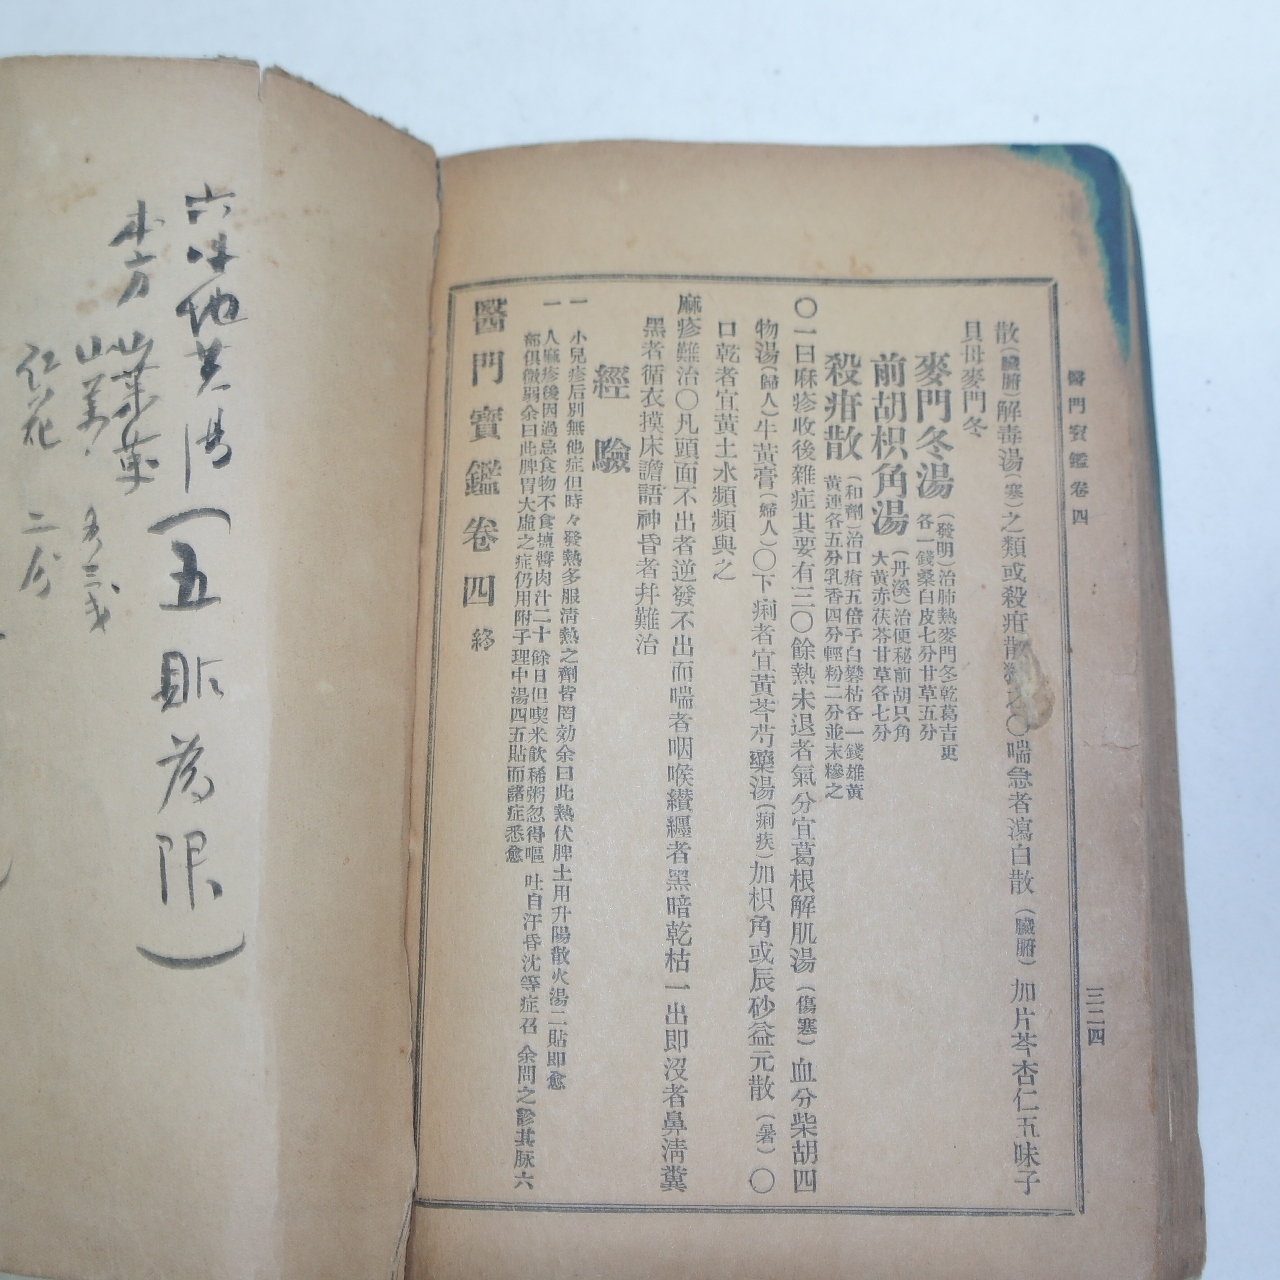 醫門寶鑑卷四
三二四
散(臟腑)解毒湯(寒)之類或殺疳散 〇喘急者瀉白散(臟腑)加片芩杏仁五味子
貝母麥門冬
麥門冬湯(發明)治肺熱麥門冬乾葛吉更
各一錢桑白皮七分甘草五分
前胡枳角湯(丹溪)治便秘前胡只角
大黃赤茯苓甘草各七分
殺疳散(和劑)治口瘡五倍子白礬枯各一錢雄黃
黃連各五分乳香四分輕粉二分並末糝之
〇一曰麻疹收後雜症其要有三〇餘熱未退者氣分宜葛根解肌湯(傷寒)血分柴胡四
物湯(婦人)牛黃膏(婦人)〇下痢者宜黃芩芍藥湯(痢疾)加枳角或辰砂益元散(暑)〇
口乾者宜黃土水頻頻與之
麻疹難治〇凡頭面不出者逆發不出而喘者咽喉纘纏者黑暗乾枯一出即沒者鼻淸糞
黑者循衣摸床譫語神昏者幷難治
經驗
一 小兒疹后別無他症但時々發熱多服淸熱之劑皆罔効余曰此熱伏脾土用升陽散火湯二貼即愈
一 人麻疹後因過忌食物不食塩醬肉汁二十餘日但喫米飮稀粥忽得嘔吐自汗昏沈等症召余問之診其脉六
部俱微弱余曰此脾胃大虛之症仍用附子理中湯四五貼而諸症悉愈
醫門寶鑑卷四 終
六味地黃湯(五貼爲限)
本方 山茱萸
山薬
二分